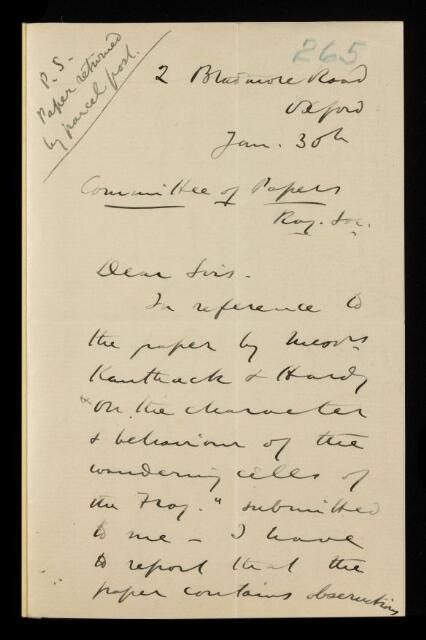 P.S.
Paper returned
by parcel post.
265
2 Bradmore Road
Oxford
Jan. 30th
Committee of Papers
Roy. Soc.
Dear Sirs.
In reference to
the paper by Messrs
Kanthack & Hardy
"On the character
& behaviour of the
wandering cells of
the Frog." submitted
to me – I have
to report that the
paper contains observations